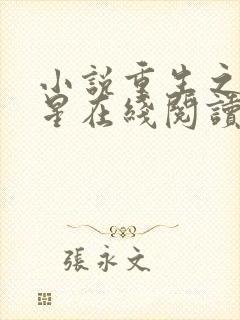 小說重生之
星在綫閱讀
張永文